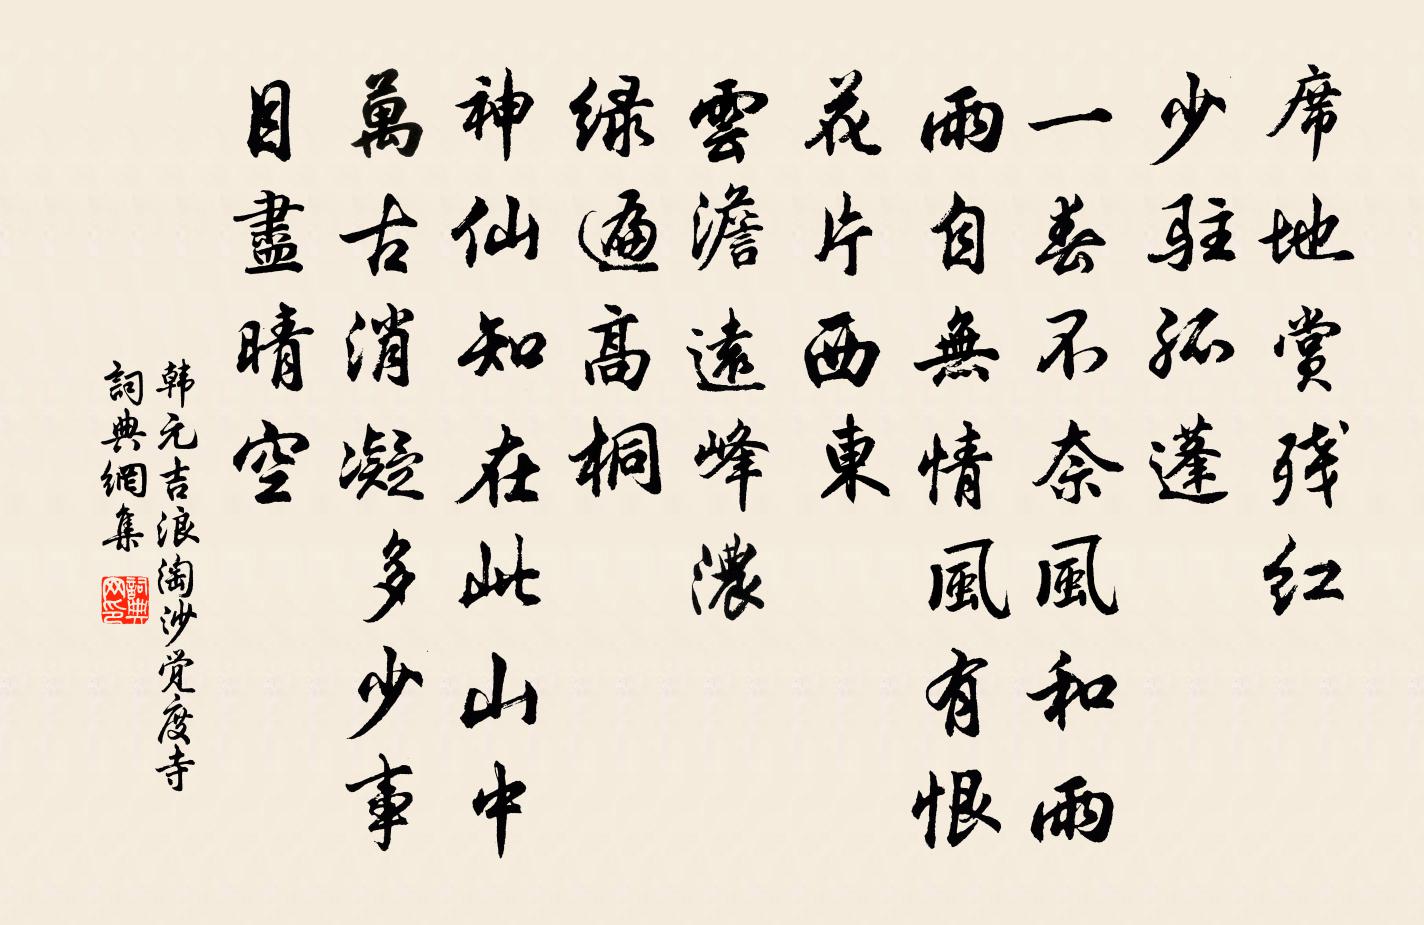 席地賞残红
少駐孤蓬
一春不奈風和雨
雨自無情風有恨
花片西東
雲澹遠峰濃
绿遍高桐
神仙知在此山中
萬古消凝多少事
目盡晴空
韩元吉浪淘沙觉度寺
詞典網集
詞典网印